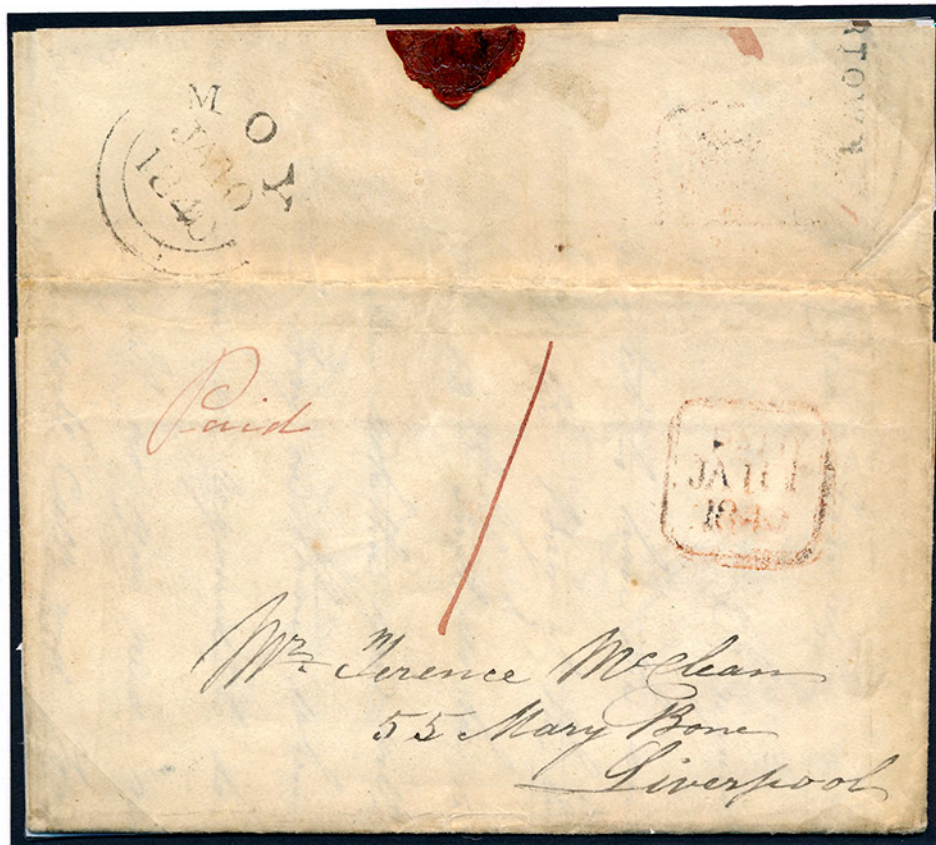 MOY
JA 10
1840
Paid
1
JA 11
1840
Mr. Terence McClean
55 Mary Bone
Liverpool